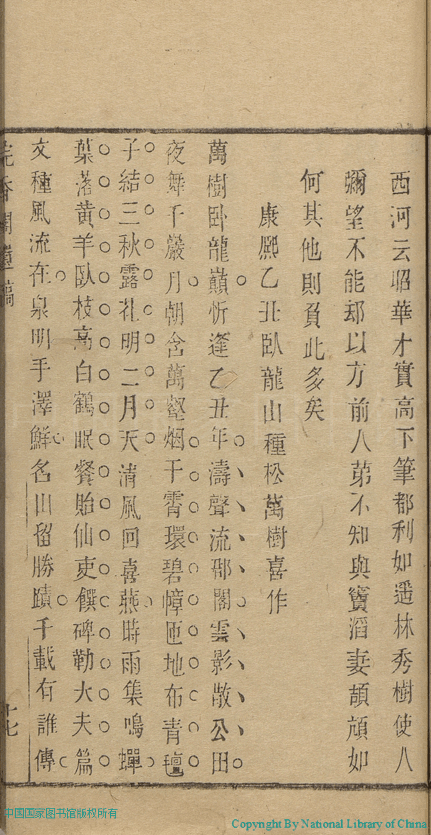 西河云昭華才實高下筆都利如遥林秀樹使人
彌望不能却以方前人第不知與竇滔妻頡頏如
何其他則負此多矣
康熈乙丑臥龍山種松萬樹喜作
萬樹卧龍巔忻逢乙丑年濤聲流郡閣雲影散公田
夜舞千巖月朝含萬壑烟干霄環碧幛匝地布青氊
子結三秋露花明二月天清風回喜燕時雨集鳴蟬
葉落黄羊臥枝高白鶴眠餐貽仙吏饌碑勒大夫篇
文種風流在泉明手澤鮮名山留勝蹟千載有誰傳
香閣遺稿
十七
中国国家图书馆版权所有
Copyright By National Library of China